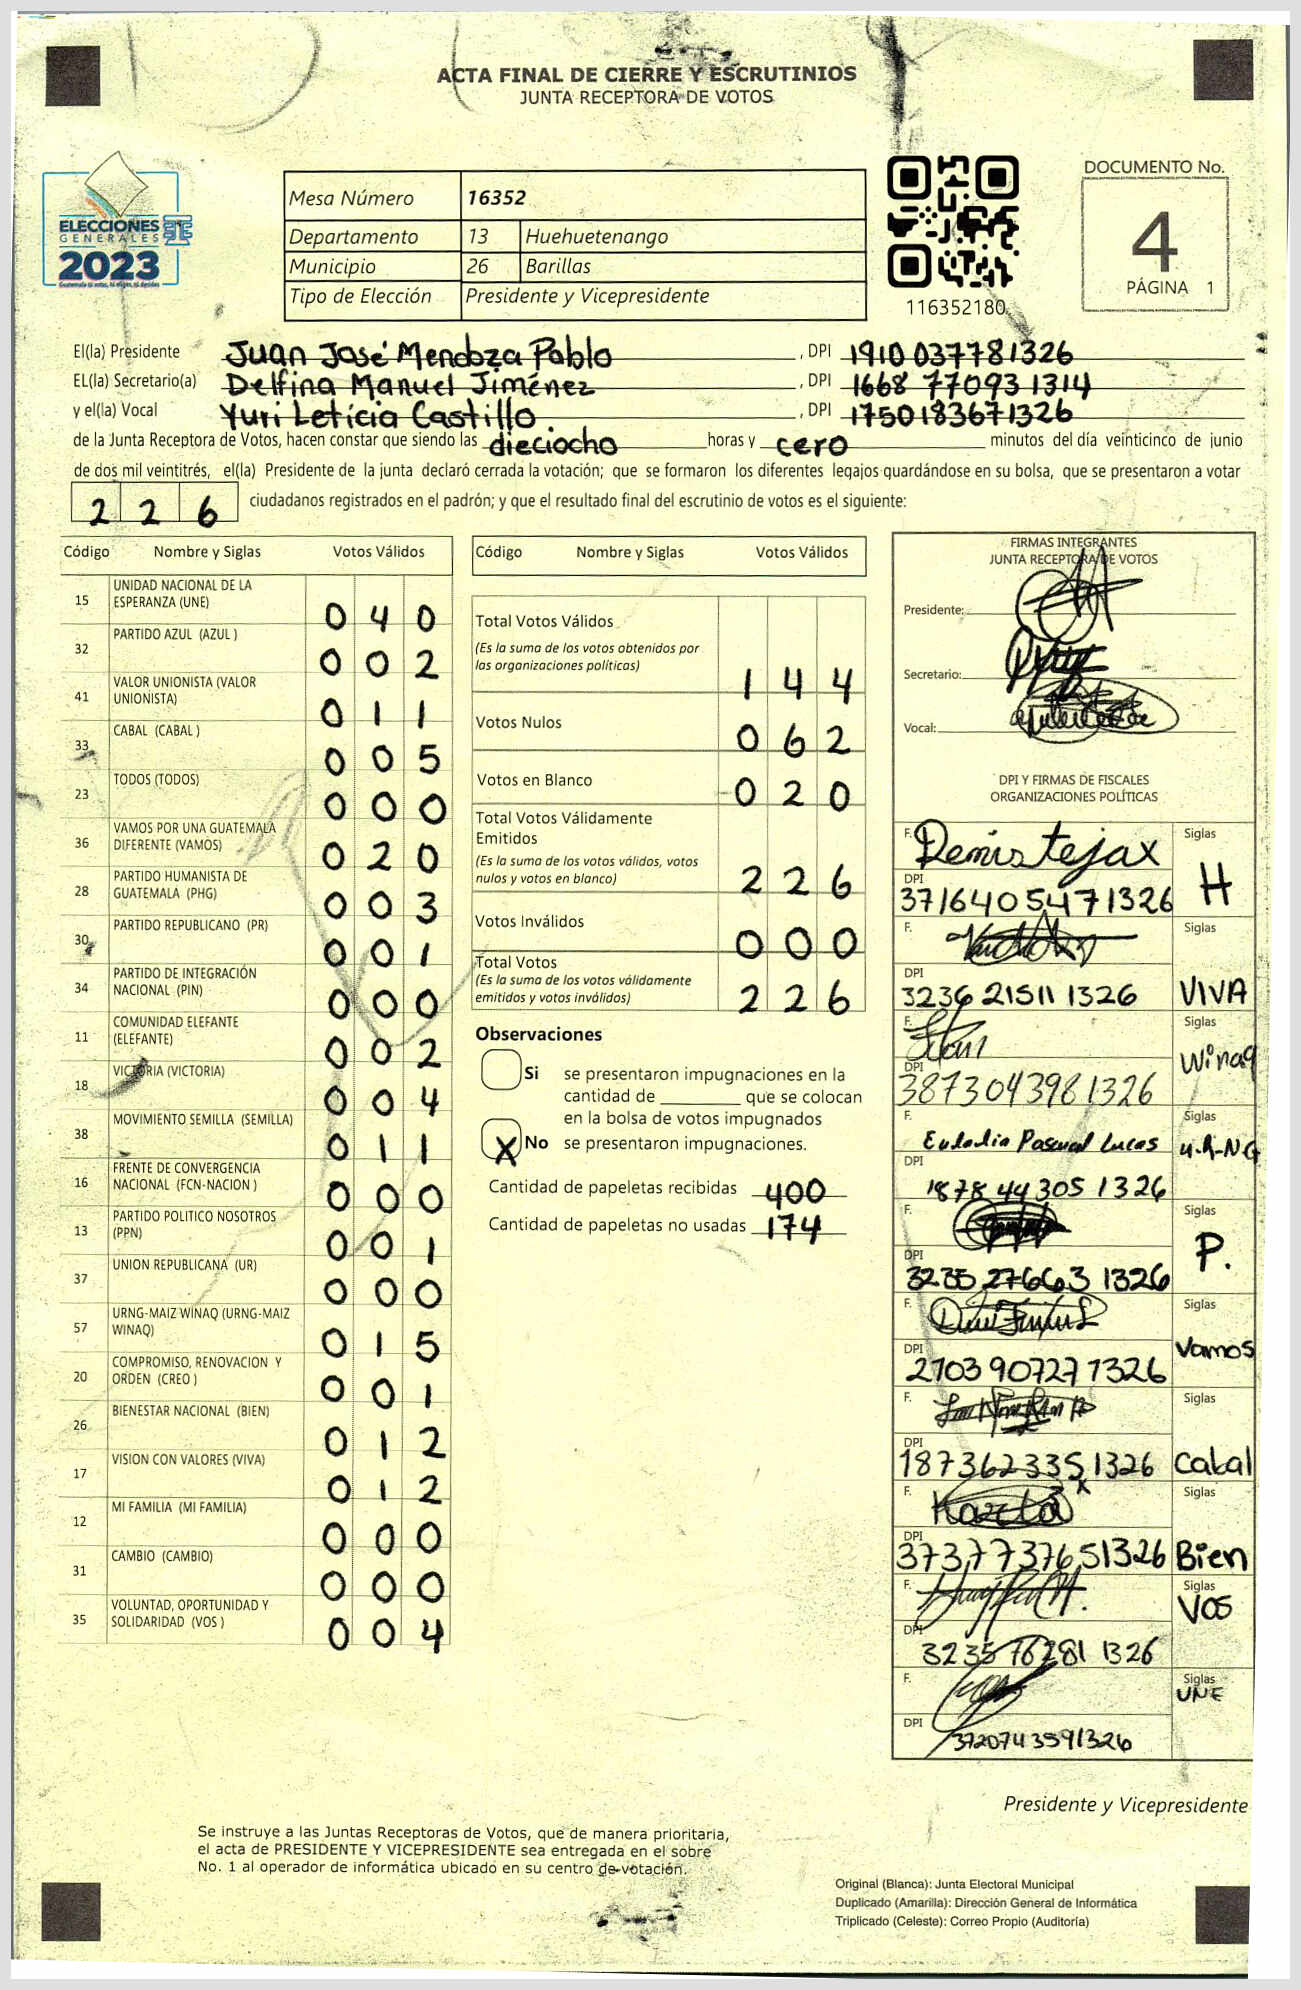 ACTA FINAL DE CIERRE Y ESCRUTINIOS
JUNTA RECEPTORA DE VOTOS
ELECCIONES
GENERALES
2023
Guatemala tú votas, tú eliges, tú decides
TSE
Mesa Número 16352
Departamento 13 Huehuetenango
Municipio 26 Barillas
Tipo de Elección Presidente y Vicepresidente
116352180
DOCUMENTO No.
4
PÁGINA 1
El(la) Presidente Juan José Mendoza Pablo , DPI 1910 037781326
EL(la) Secretario(a) Delfina Manuel Jiménez , DPI 1668 77093 1314
y el(la) Vocal Yuri Leticia Castillo , DPI 1750183671326
de la Junta Receptora de Votos, hacen constar que siendo las dieciocho horas y cero minutos del día veinticinco de junio
de dos mil veintitrés, el(la) Presidente de la junta declaró cerrada la votación; que se formaron los diferentes legajos guardándose en su bolsa, que se presentaron a votar
2 2 6 ciudadanos registrados en el padrón; y que el resultado final del escrutinio de votos es el siguiente:
Código Nombre y Siglas Votos Válidos
15 UNIDAD NACIONAL DE LA ESPERANZA (UNE) 0 4 0
32 PARTIDO AZUL (AZUL ) 0 0 2
41 VALOR UNIONISTA (VALOR UNIONISTA) 0 1 1
33 CABAL (CABAL ) 0 0 5
23 TODOS (TODOS) 0 0 0
36 VAMOS POR UNA GUATEMALA DIFERENTE (VAMOS) 0 2 0
28 PARTIDO HUMANISTA DE GUATEMALA (PHG) 0 0 3
30 PARTIDO REPUBLICANO (PR) 0 0 1
34 PARTIDO DE INTEGRACIÓN NACIONAL (PIN) 0 0 0
11 COMUNIDAD ELEFANTE (ELEFANTE) 0 0 2
18 VICTORIA (VICTORIA) 0 0 4
38 MOVIMIENTO SEMILLA (SEMILLA) 0 1 1
16 FRENTE DE CONVERGENCIA NACIONAL (FCN-NACION ) 0 0 0
13 PARTIDO POLITICO NOSOTROS (PPN) 0 0 1
37 UNION REPUBLICANA (UR) 0 0 0
57 URNG-MAIZ WINAQ (URNG-MAIZ WINAQ) 0 1 5
20 COMPROMISO, RENOVACION Y ORDEN (CREO ) 0 0 1
26 BIENESTAR NACIONAL (BIEN) 0 1 2
17 VISION CON VALORES (VIVA) 0 1 2
12 MI FAMILIA (MI FAMILIA) 0 0 0
31 CAMBIO (CAMBIO) 0 0 0
35 VOLUNTAD, OPORTUNIDAD Y SOLIDARIDAD (VOS ) 0 0 4
Código Nombre y Siglas Votos Válidos
Total Votos Válidos
(Es la suma de los votos obtenidos por
las organizaciones políticas) 1 4 4
Votos Nulos 0 6 2
Votos en Blanco 0 2 0
Total Votos Válidamente
Emitidos
(Es la suma de los votos válidos, votos
nulos y votos en blanco) 2 2 6
Votos Inválidos 0 0 0
Total Votos
(Es la suma de los votos válidamente
emitidos y votos inválidos) 2 2 6
Observaciones
Si se presentaron impugnaciones en la
cantidad de ________ que se colocan
en la bolsa de votos impugnados
X No se presentaron impugnaciones.
Cantidad de papeletas recibidas 400
Cantidad de papeletas no usadas 174
FIRMAS INTEGRANTES
JUNTA RECEPTORA DE VOTOS
Presidente:
Secretario:
Vocal:
DPI Y FIRMAS DE FISCALES
ORGANIZACIONES POLÍTICAS
F. Denis tejax Siglas
DPI 3716405471326 H
F. Siglas
DPI 3236 21511 1326 VIVA
F. Siglas
DPI 3873043981326 Winaq
F. Eulalia Pascual Lucas Siglas
DPI 1878 44305 1326 U.R-NG
F. Siglas
DPI 3235 27663 1326 P.
F. Siglas
DPI 2103 90727 1326 Vamos
F. Siglas
DPI 1873623351326 Cabal
F. Karla Siglas
DPI 3737737651326 Bien
F. Siglas
DPI 3235 76281 1326 VOS
F. Siglas
DPI 3720743591326 UNE
Presidente y Vicepresidente
Se instruye a las Juntas Receptoras de Votos, que de manera prioritaria,
el acta de PRESIDENTE Y VICEPRESIDENTE sea entregada en el sobre
No. 1 al operador de informática ubicado en su centro de votación.
Original (Blanca): Junta Electoral Municipal
Duplicado (Amarilla): Dirección General de Informática
Triplicado (Celeste): Correo Propio (Auditoría)